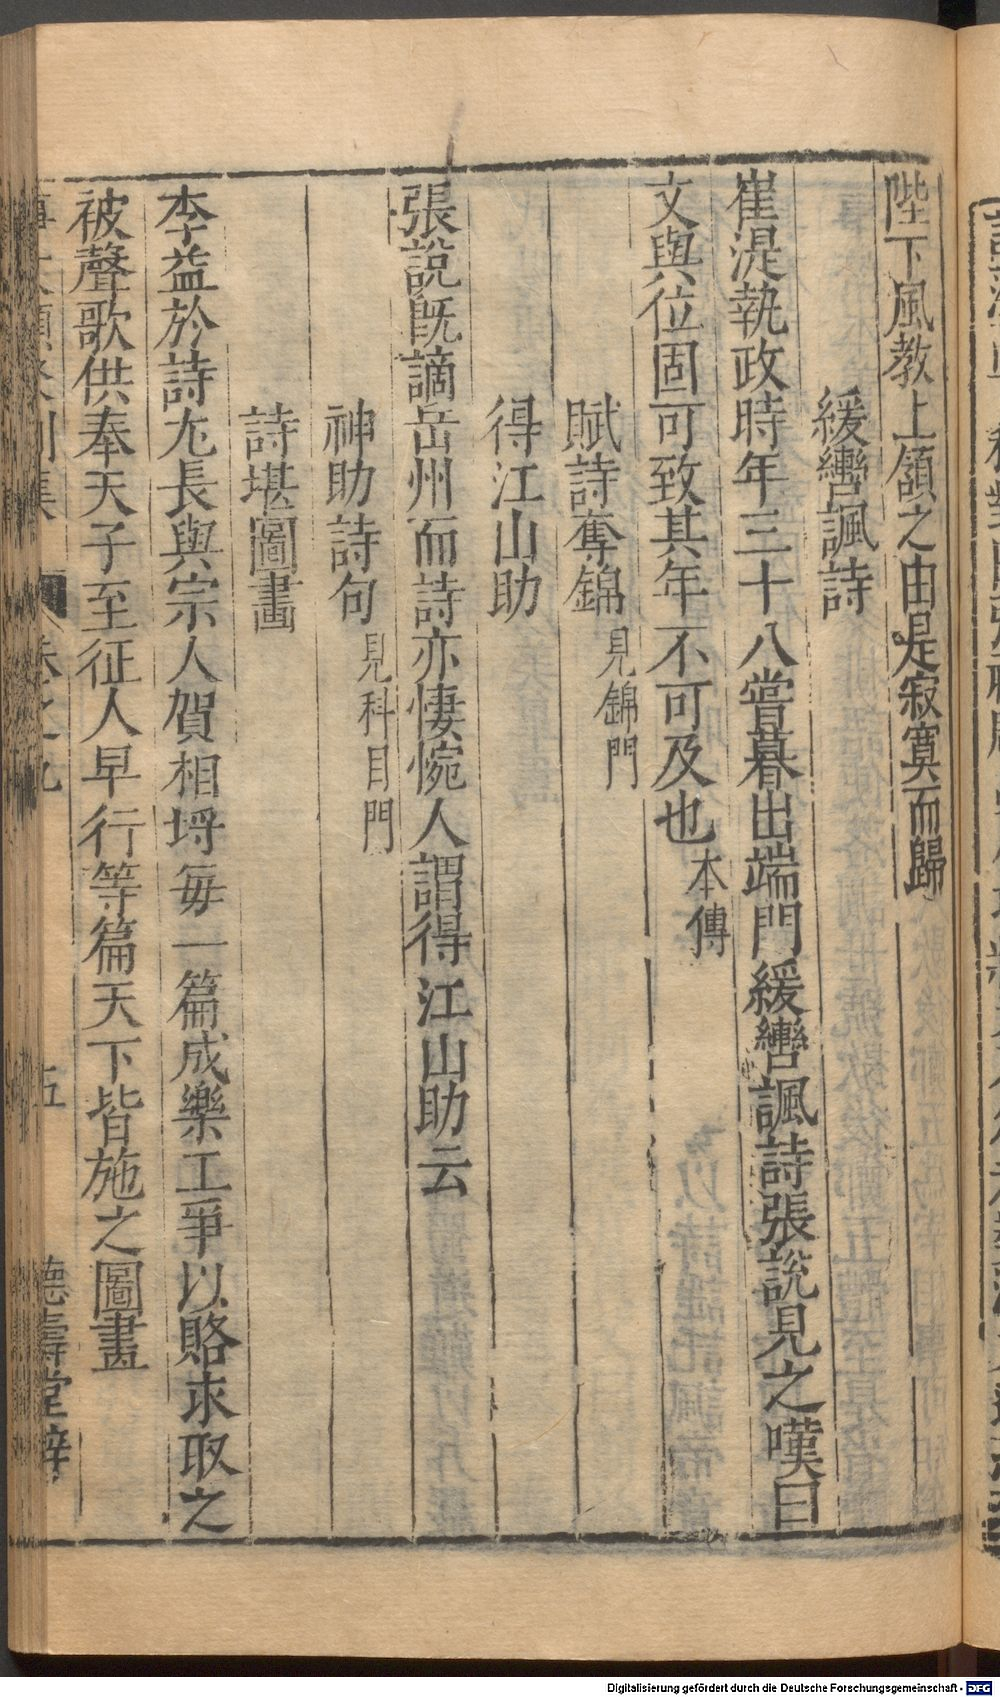 陛下風教上頷之由是寂寞而歸
緩轡諷詩
崔湜執政時年三十八嘗暮出端門緩轡諷詩張說見之嘆曰
文與位固可致其年不可及也 本傳
賦詩奪錦 見錦門
得江山助
張說既謫岳州而詩亦悽惋人謂得江山助云
神助詩句 見科目門
詩堪圖畫
李益於詩尤長與宗人賀相埒每一篇成樂工爭以賂求取之
被聲歌供奉天子至征人早行等篇天下皆施之圖畫
卷之九
五
德壽堂梓
Digitalisierung gefördert durch die Deutsche Forschungsgemeinschaft - DFG